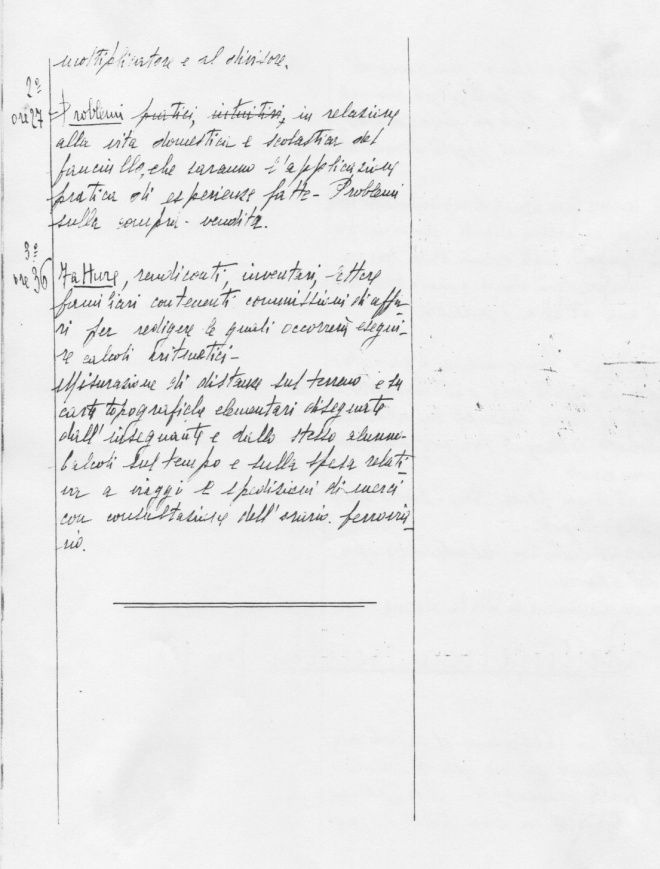 moltiplicatore e al divisore.
2º
ore 27 = Problemi pratici, intuitivi, in relazione
alla vita domestica e scolastica del
fanciullo, che saranno l'applicazione
pratica di esperienze fatte - Problemi
sulla compra-vendita.
3º
ore 36 Fatture, rendiconti, inventari, lettere
familiari contenenti commissioni di affa-
ri per redigere le quali occorrerà esegui-
re calcoli aritmetici -
Misurazione di distanze sul terreno e su
carte topografiche elementari disegnate
dall'insegnante e dallo stesso alunno -
Calcoli sul tempo e sulla spesa relati-
va a viaggi e spedizioni di merci
con consultazione dell'orario ferrovia-
rio.